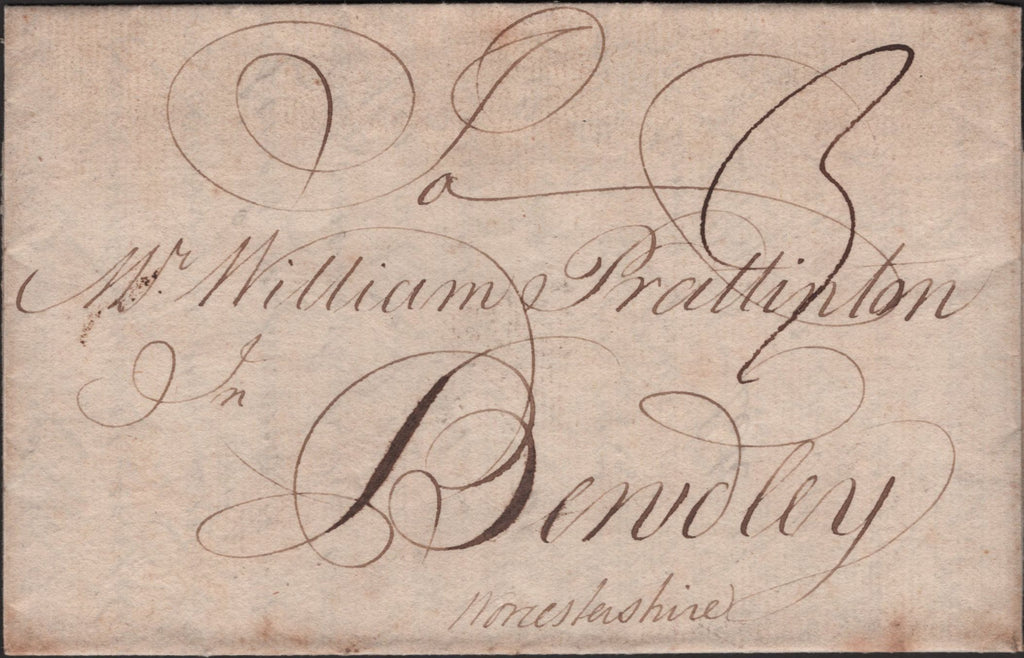 To 3
Mr. William Prattinton
In
Bewdley
Worcestershire